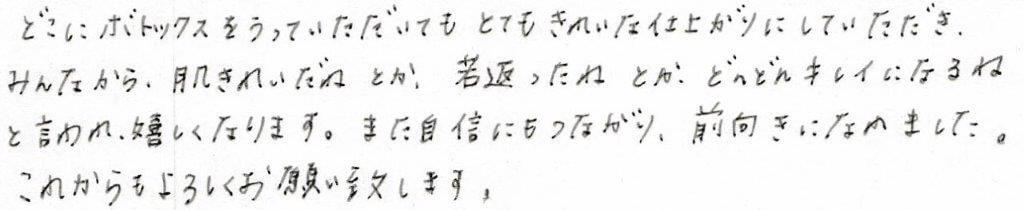 どこにボトックスをうっていただいてもとてもきれいな仕上がりにしていただき、
みんなから、肌きれいだねとか、若返ったねとか、どんどんキレイになるね
と言われ、嬉しくなります。また自信にもつながり、前向きになれました。
これからもよろしくお願い致します。